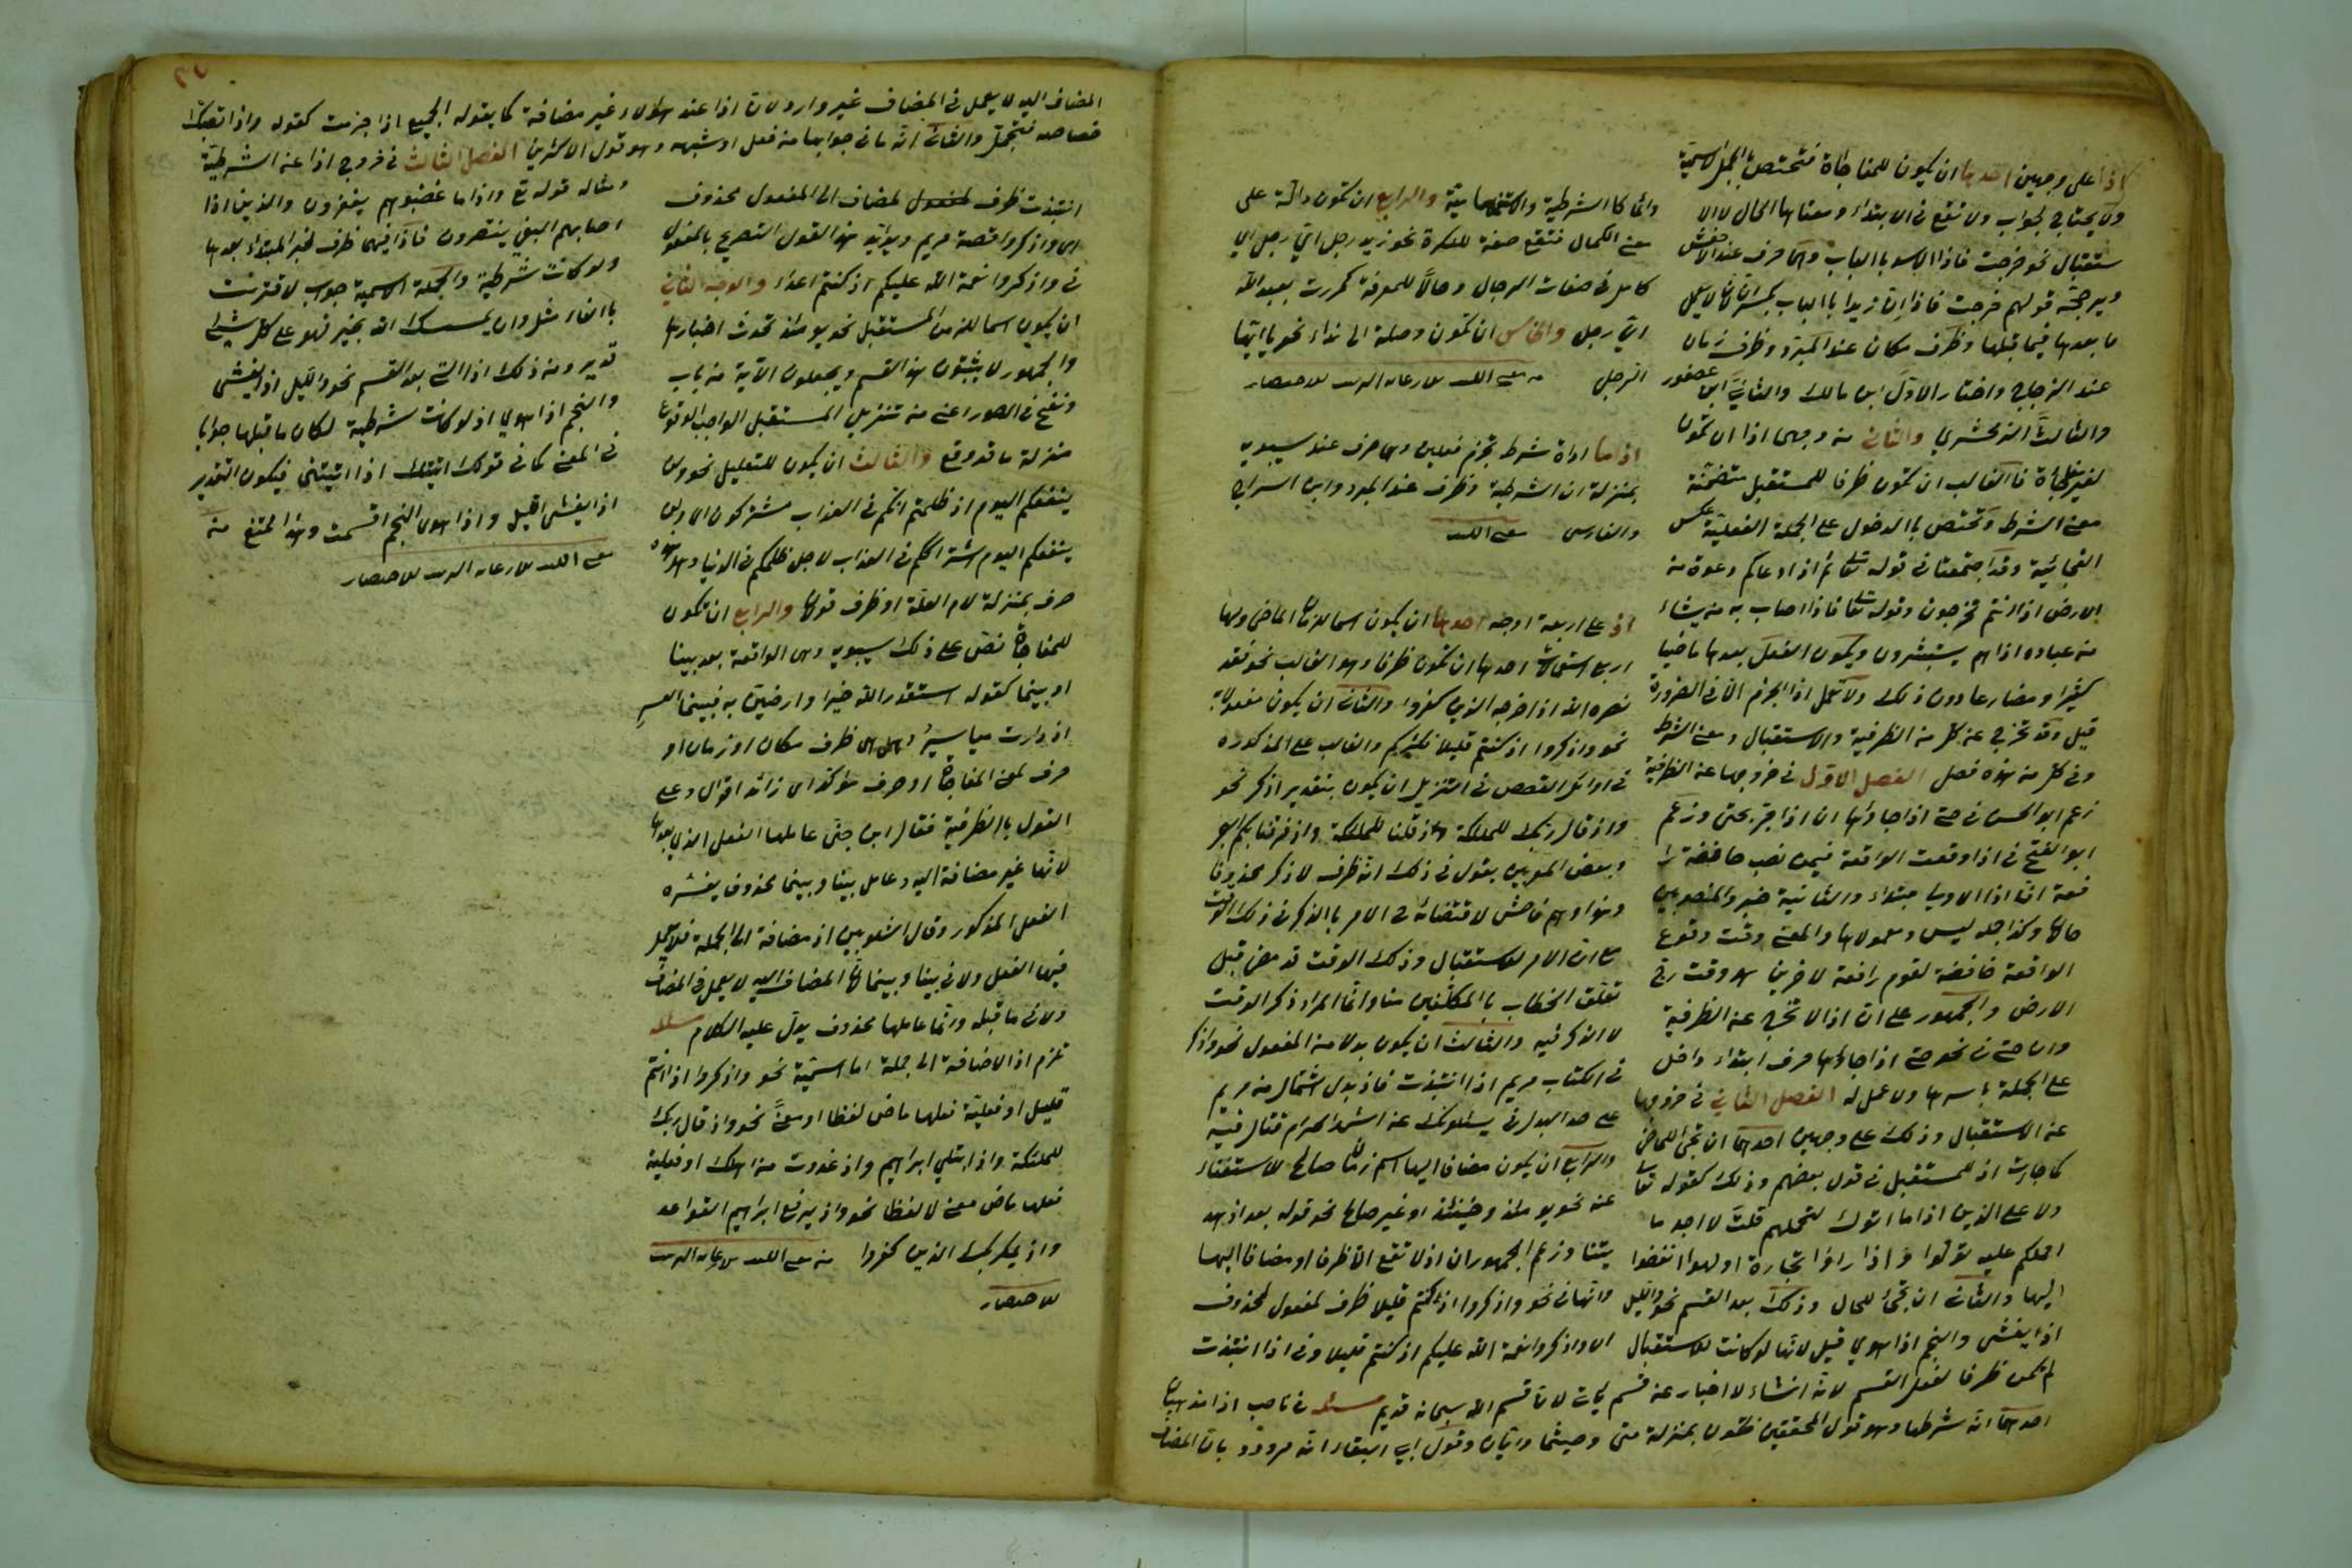 اذا على وجهين احدها ان يكون للمفاجاة فتختص بالجمل الاسمية
ولا يحتاج لجواب ولا تقع فى الابتداء ومعناها الحال لا الا
ستقبال نحو خرجت فاذا الاسد بالباب وهى حرف عند الاخفش
ويرجحه قولهم خرجت فاذا ان زيدا بالباب بكسر ان لان ان لا يعمل
ما بعدها فيما قبلها وظرف مكان عند المبرد وظرف زمان
عند الزجاج واختار الاول ابن مالك والثانى ابن عصفور
والثالث الزمخشري والثانى من وجهى اذا ان تكون
لغير مفاجأة فالغالب ان تكون ظرفا للمستقبل متضمنة
معنى الشرط وتختص بالدخول على الجملة الفعلية عكس
الفجائية وقد اجتمعتا فى قوله تعالى ثم اذا دعاكم دعوة من
الارض اذا انتم تخرجون وقوله تعالى فاذا اصاب به من يشاء
من عباده اذا هم يستبشرون ويكون الفعل بعدها ماضيا
كثيرا ومضارعا دون ذلك ولا تعمل اذا الجزم الا فى الضرورة
قيل وقد تخرج عن كل من الظرفية والاستقبال ومعنى الشرط
وفى كل من هذه فصل الفصل الاول فى خروجها عن الظرفية
زعم ابو الحسن فى حتى اذا جاؤها ان اذا جر بحتى وزعم
ابو الفتح فى اذا وقعت الواقعة فيمن نصب خافضة را
فعة ان اذا الاولى مبتداء والثانية خبر والمنصوبين
حالان وكذا جملة ليس ومعمولاها والمعنى وقت وقوع
الواقعة خافضة لقوم رافعة لاخرين هو وقت رج
الارض والجمهور على ان اذا لا تخرج عن الظرفية
وان حتى فى نحو حتى اذا جاؤها حرف ابتداء داخل
على الجملة باسرها ولا عمل له الفصل الثانى فى خروجها
عن الاستقبال وذلك على وجهين احدهما ان تجئ للماضى
كما جاءت اذ للمستقبل فى قول بعضهم وذلك كقوله تعالى
ولا على الذين اذا ما اتوك لتحملهم قلت لا اجد ما
احملكم عليه تولوا واذا راوا تجارة او لهوا انفضوا
اليها والثانى ان تجئ للحال وذلك بعد القسم نحو والليل
اذا يغشى والنجم اذا هوي قيل لانها لو كانت للاستقبال
لم تكن ظرفا لفعل القسم لانه انشاء لا اخبار عن قسم يأت لان قسم الله سبحانه قديم مسئلة فى ناصب اذا مذهبان
احدهما انه شرطها وهو قول المحققين فتكون بمنزلة متى وحيثما وايان وقول ابى البقاء انه مردود بان المضاف
وانما كا الشرطية والاستفهامية والرابع ان تكون دالة على
معنى الكمال فتقع صفة للنكرة نحو زيد رجل اى رجل اى
كامل فى صفات الرجال وحالا للمعرفة كمررت بعبد الله
اى رجل والخامس ان تكون وصلة الى نداء نحو يا ايها
الرجل
اذ ما اداة شرط تجزم فعلين وهى حرف عند سيبويه
بمنزلة ان الشرطية وظرف عند المبرد وابن السراج
والفارسى
اذ على اربعة اوجه احدها ان يكون اسما للزمان الماضى ولها
اربع استعمالات احدها ان تكون ظرفا وهو الغالب نحو فقد
نصره الله اذ اخرجه الذين كفروا والثانى ان يكون مفعولا به
نحو واذكروا اذ كنتم قليلا فكثركم والغالب على المذكورة
فى اوائل القصص فى التنزيل ان يكون بتقدير اذكر نحو
واذ قال ربك للملئكة واذ قلنا للملئكة واذ فرقنا بكم البحر
وبعض المعربين يقول فى ذلك انه ظرف لاذكر محذوفا
وهذا وهم فاحش لاقتضائه ح الامر بالذكر فى ذلك الوقت
مع ان الامر للاستقبال وذلك الوقت قد مضى قبل
تعلق الخطاب بالمكلفين منا وانما المراد ذكر الوقت
لا الذكر فيه والثالث ان يكون بدلا من المفعول نحو واذكر
فى الكتاب مريم اذ انتبذت فاذ بدل اشتمال من مريم
على حد البدل فى يسئلونك عن الشهر الحرام قتال فيه
والرابع ان يكون مضافا اليها اسم زمان صالح للاستغناء
عنه نحو يومئذ وحينئذ او غير صالح نحو قوله بعد اذ هد
يتنا وزعم الجمهور ان اذ لا تقع الا ظرفا او مضافا اليها
وانها فى نحو واذكروا اذ كنتم قليلا ظرف لمفعول محذوف
اى واذكروا نعمة الله عليكم اذ كنتم قليلا وفى اذ انتبذت
المضاف اليه لا يعمل فى المضاف غير وارد لان اذا عند هؤلاء غير مضافة كما يقوله الجميع اذا جزمت كقوله واذا تصبك
خصاصة فتجمل والثانى انه ما فى جوابها من فعل او شبهه وهو قول الاكثرين الفصل الثالث فى خروج اذا عن الشرطية
انتبذت ظرف لمفعول لمضاف الى المفعول محذوف
اى واذكروا قصة مريم ويؤيد هذا القول التصريح بالمفعول
فى واذكروا نعمة الله عليكم اذ كنتم اعداء والوجه الثانى
ان يكون اسما للزمن المستقبل نحو يومئذ تحدث اخبارها
والجمهور لا يثبتون هذا القسم ويجعلون الاية من باب
ونفخ فى الصور اعنى من تنزيل المستقبل الواجب الوقوع
منزلة ما قد وقع والثالث ان يكون للتعليل نحو ولن
ينفعكم اليوم اذ ظلمتم انكم فى العذاب مشتركون اى ولن
ينفعكم اليوم اشتراككم فى العذاب لاجل ظلمكم فى الدنيا وهل هذه
حرف بمنزلة لام العلة او ظرف قولان والرابع ان تكون
للمفاجاة نص على ذلك سيبويه وهى الواقعة بعد بينا
او بينما كقوله استقدر الله خيرا وارضين به فبينما العسر
اذ دارت مياسير وهل هى ظرف مكان او زمان او
حرف لمعنى المفاجاة او حرف مؤكد اى زائد اقوال وعلى
القول بالظرفية فقال ابن جنى عاملها الفعل الذى بعدها
لانها غير مضافة اليه وعامل بينا وبينما محذوف يفسره
الفعل المذكور وقال الشلوبين اذ مضافة الى الجملة فلا يعمل
فيها الفعل ولا فى بينا وبينما لان المضاف اليه لا يعمل فى المضاف
ولا فى ما قبله وانما عاملها محذوف يدل عليه الكلام مسئلة
تلزم اذ الاضافة الى جملة اما اسمية نحو واذكروا اذ انتم
قليل او فعلية فعلها ماض لفظا او معنى نحو واذ قال ربك
للملئكة واذ ابتلى ابراهيم واذ غدوت من اهلك او فعلية
فعلها ماض معنى لا لفظا نحو واذ يرفع ابراهيم القواعد
واذ يمكر بك الذين كفروا
ومثاله قوله تع واذا ما غضبوا هم يغفرون والذين اذا
اصابهم البغى ينتصرون فاذا فيهما ظرف لخبر المبتداء بعدها
ولو كانت شرطية والجملة الاسمية جواب لاقترنت
بالفاء مثل وان يمسسك الله بخير فهو على كل شئ
قدير ومن ذلك اذا التى بعد القسم نحو والليل اذا يغشى
والنجم اذا هوي اذ لو كانت شرطية لكان ما قبلها جوابا
فى المعنى كما فى قولك اتيك اذا اتيتنى فيكون التقدير
اذا يغشى الليل واذا هوى النجم اقسمت وهذا ممتنع